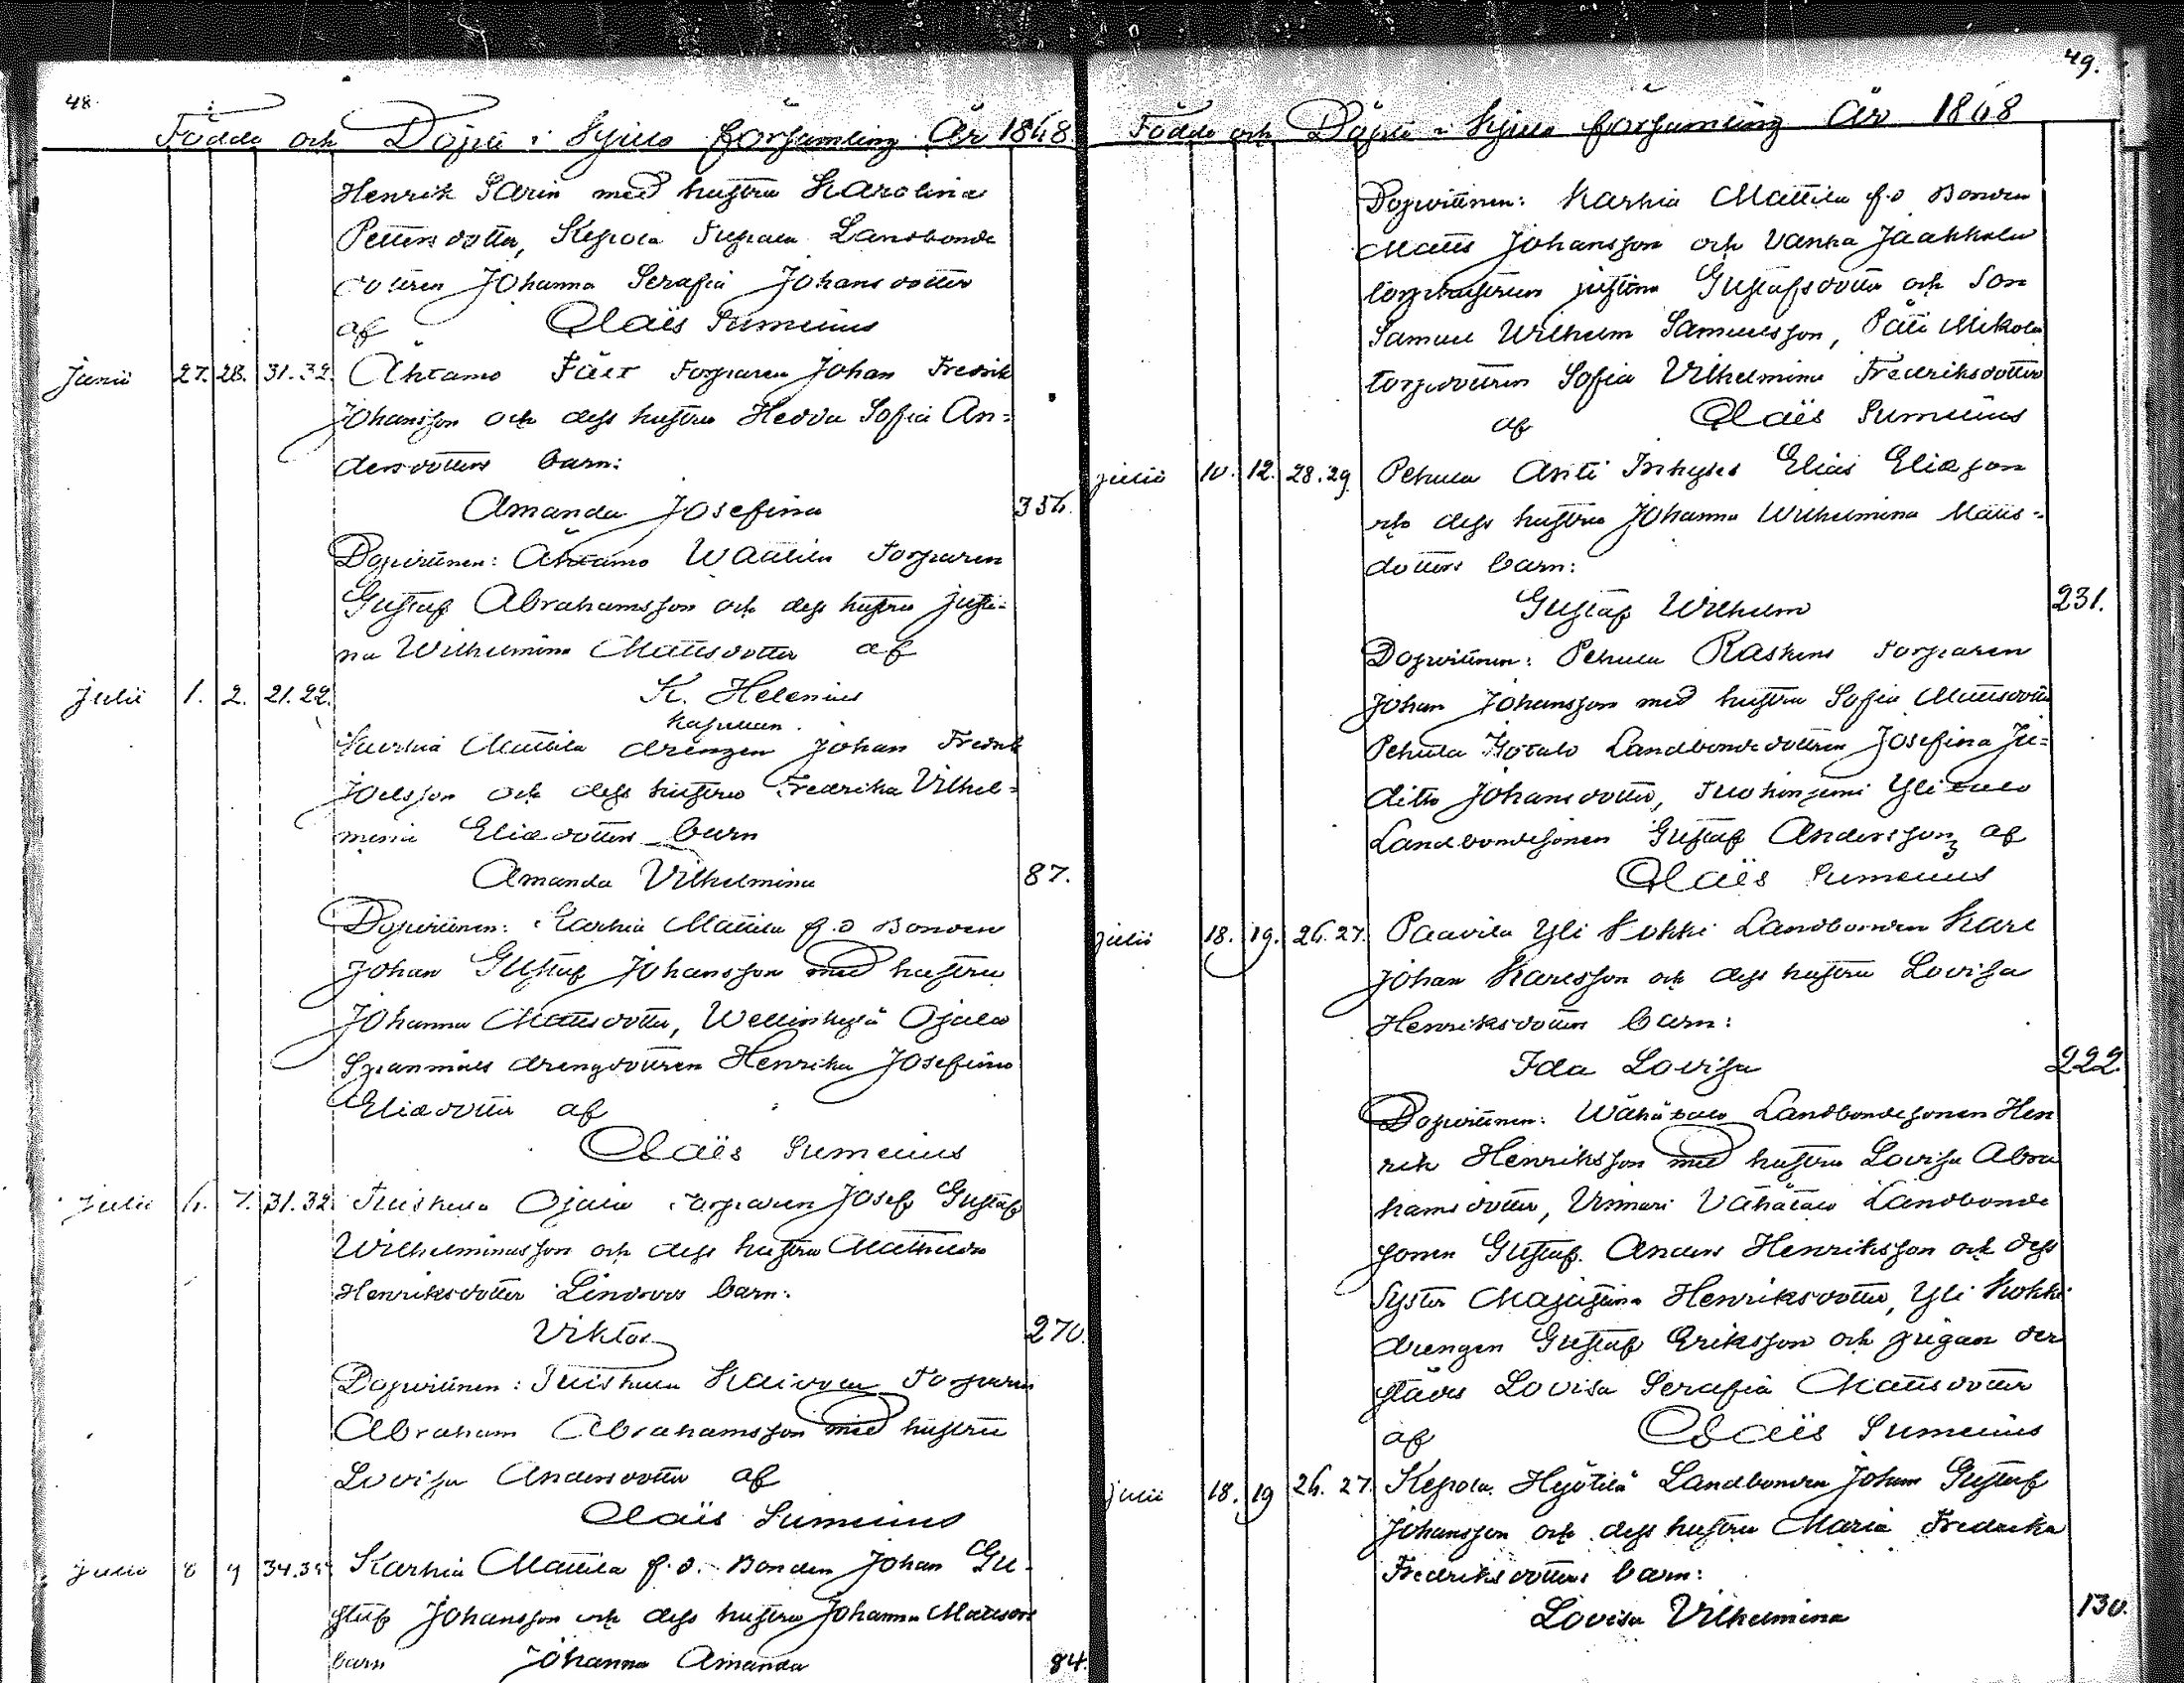 48.
Födde och Döpte i Kjulo församling År 1868.
Henrik Sarin med hustru Karolina
Petters dotter, Kepola Landbonde
dottren Johanna Serafia Johans dotter
af Claës Sumelius
Junii 27. 28. 31.32. Ahtamo Fält Torparen Johan Fredrik
Johansson och dess hustru Hedda Sofia An=
dersdotters barn:
Amanda Josefina 354.
Dopvittnen: Ahtamo Waltila Torparen
Gustaf Abrahamsson och dess hustru Justi=
na Wilhelmina Mattsdotter af
Julii 1. 2. 21.22. K. Helenius
Kapellan.
Karhia Mattila drengen Johan Fredrik
Joelsson och dess hustru Fredrika Vilhel=
mina Eliæ dotters barn
Amanda Vilhelmina 87.
Dopvittnen: Karhia Mattila f.d Bonden
Johan Gustaf Johansson med hustru
Johanna Mattsdotter, Wellinkylä Ojala
Spanmåls drengdottren Henrika Josefina
Eliædotter af
Claës Sumelius
Julii 6. 7. 31.32. Tuiskula Ojala Torparen Josef Gustaf
Wilhelminasson och dess hustru Mathilda
Henriksdotter Lindroos barn:
Viktor 270.
Dopvittnen: Tuiskula Kaivola Torparen
Abraham Abrahamsson med hustru
Lovisa Andersdotter af
Claës Sumelius
Julii 8 9 34.35 Karhia Mattila f.d. Bonden Johan Gu-
staf Johansson och dess hustru Johanna Mattsdot
barn Johanna Amanda 84.
49.
Födde och Döpte i Kjulo församling År 1868
Dopvittnen: Karhia Mattila f.d Bonden
Matts Johansson och Vanha Jaakkola
torphustrun Justina Gustafsdotter och Son
Samuel Wilhelm Samuelsson, Mikola
torpdottren Sofia Vilhelmina Fredriksdotter
af Claës Sumelius
Julii 10. 12. 28.29. Pehula Antti Inhyses Elias Eliæson
och dess hustru Johanna Wilhelmina Matts=
dotters barn:
Gustaf Wilhelm 231.
Dopvittnen: Pehula Raskens Torparen
Johan Johansson med hustru Sofia Mattsdotter
Pehula Landbondedottren Josefina Ju=
ditha Johansdotter, Ylitalo
Landbondesonen Gustaf Andersson, af
Claës Sumelius
Julii 18. 19. 26.27. Paavila Yli Kokki Landbonden Karl
Johan Karlsson och dess hustru Lovisa
Henriksdotters barn:
Ida Lovisa 222.
Dopvittnen: Wähätalo Landbondesonen Hen
rik Henriksson med hustru Lovisa Abra
hamsdotter, Vinnari Vähätalo Landbonde
sonen Gustaf Anders Henriksson och dess
Syster Majastina Henriksdotter, Yli Kokki
drengen Gustaf Eriksson och pigan der
städes Lovisa Serafia Mattsdotter
af Claës Sumelius
Julii 18. 19 26.27. Kepola Hyötilä Landbonden Johan Gustaf
Johansson och dess hustru Maria Fredrika
Fredriksdotters barn:
Lovisa Vilhelmina 130.